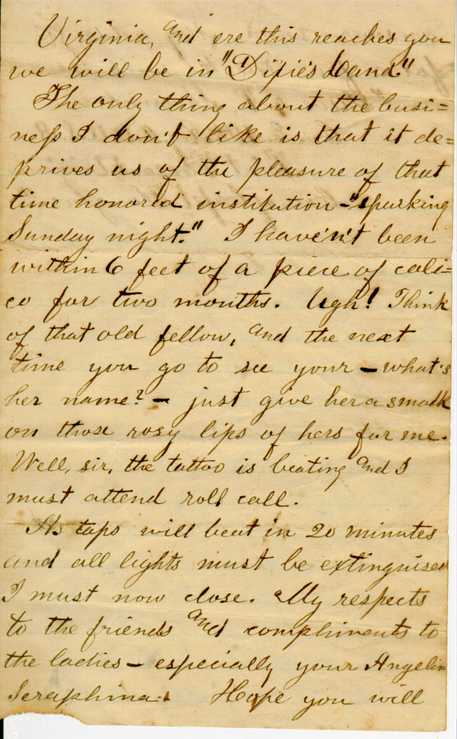 Virginia, and ere this reaches you
we will be in "Dixie's Land."
The only thing about the busi=
ness I don't like is that it de=
prives us of the pleasure of that
time honored institution - "sparking
Sunday night." I haven't been
within 6 feet of a piece of cali=
co for two months. Ugh! Think
of that old fellow, and the next
time you go to see your - what's
her name? - just give her a smack
on those rosy lips of hers for me.
Well, sir, the tattoo is beating and I
must attend roll call.
As taps will beat in 20 minutes
and all lights must be extinguised
I must now close. My respects
to the friends and compliments to
the ladies - especially your Angelin
Seraphina. Hope you will